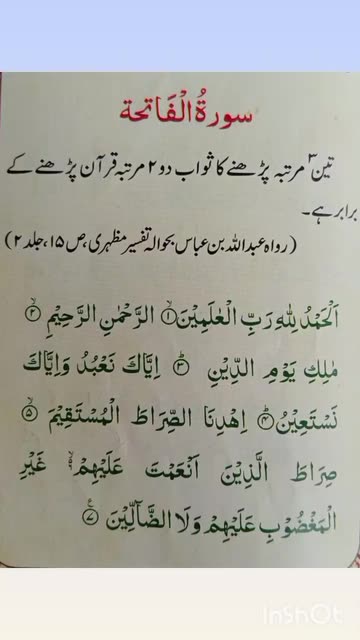 سورۃُ الْفَاتحة
تین۳ مرتبہ پڑھنے کا ثواب دو۲ مرتبہ قرآن پڑھنے کے
برابر ہے۔
(رواہ عبداللہ بن عباس بحوالہ تفسیر مظہری، ص۱۵، جلد۲)
اَلْحَمْدُ لِلّٰهِ رَبِّ الْعٰلَمِيْنَ ۙ﴿۱﴾ الرَّحْمٰنِ الرَّحِيْمِ ۙ﴿۲﴾
مٰلِكِ يَوْمِ الدِّيْنِ ؕ﴿۳﴾ اِيَّاكَ نَعْبُدُ وَاِيَّاكَ
نَسْتَعِيْنُ ؕ﴿۴﴾ اِهْدِنَا الصِّرَاطَ الْمُسْتَقِيْمَ ۙ﴿۵﴾
صِرَاطَ الَّذِيْنَ اَنْعَمْتَ عَلَيْهِمْ ۙ۬ۦ غَيْرِ
الْمَغْضُوْبِ عَلَيْهِمْ وَلَا الضَّآلِّيْنَ ﴿۷﴾
InShOt